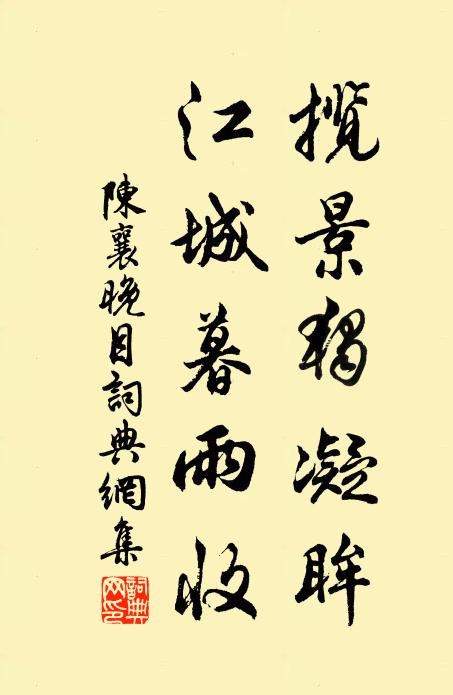 揽景独凝眸
江城暮雨收
陳襄晚目詞典網集
詞典網印